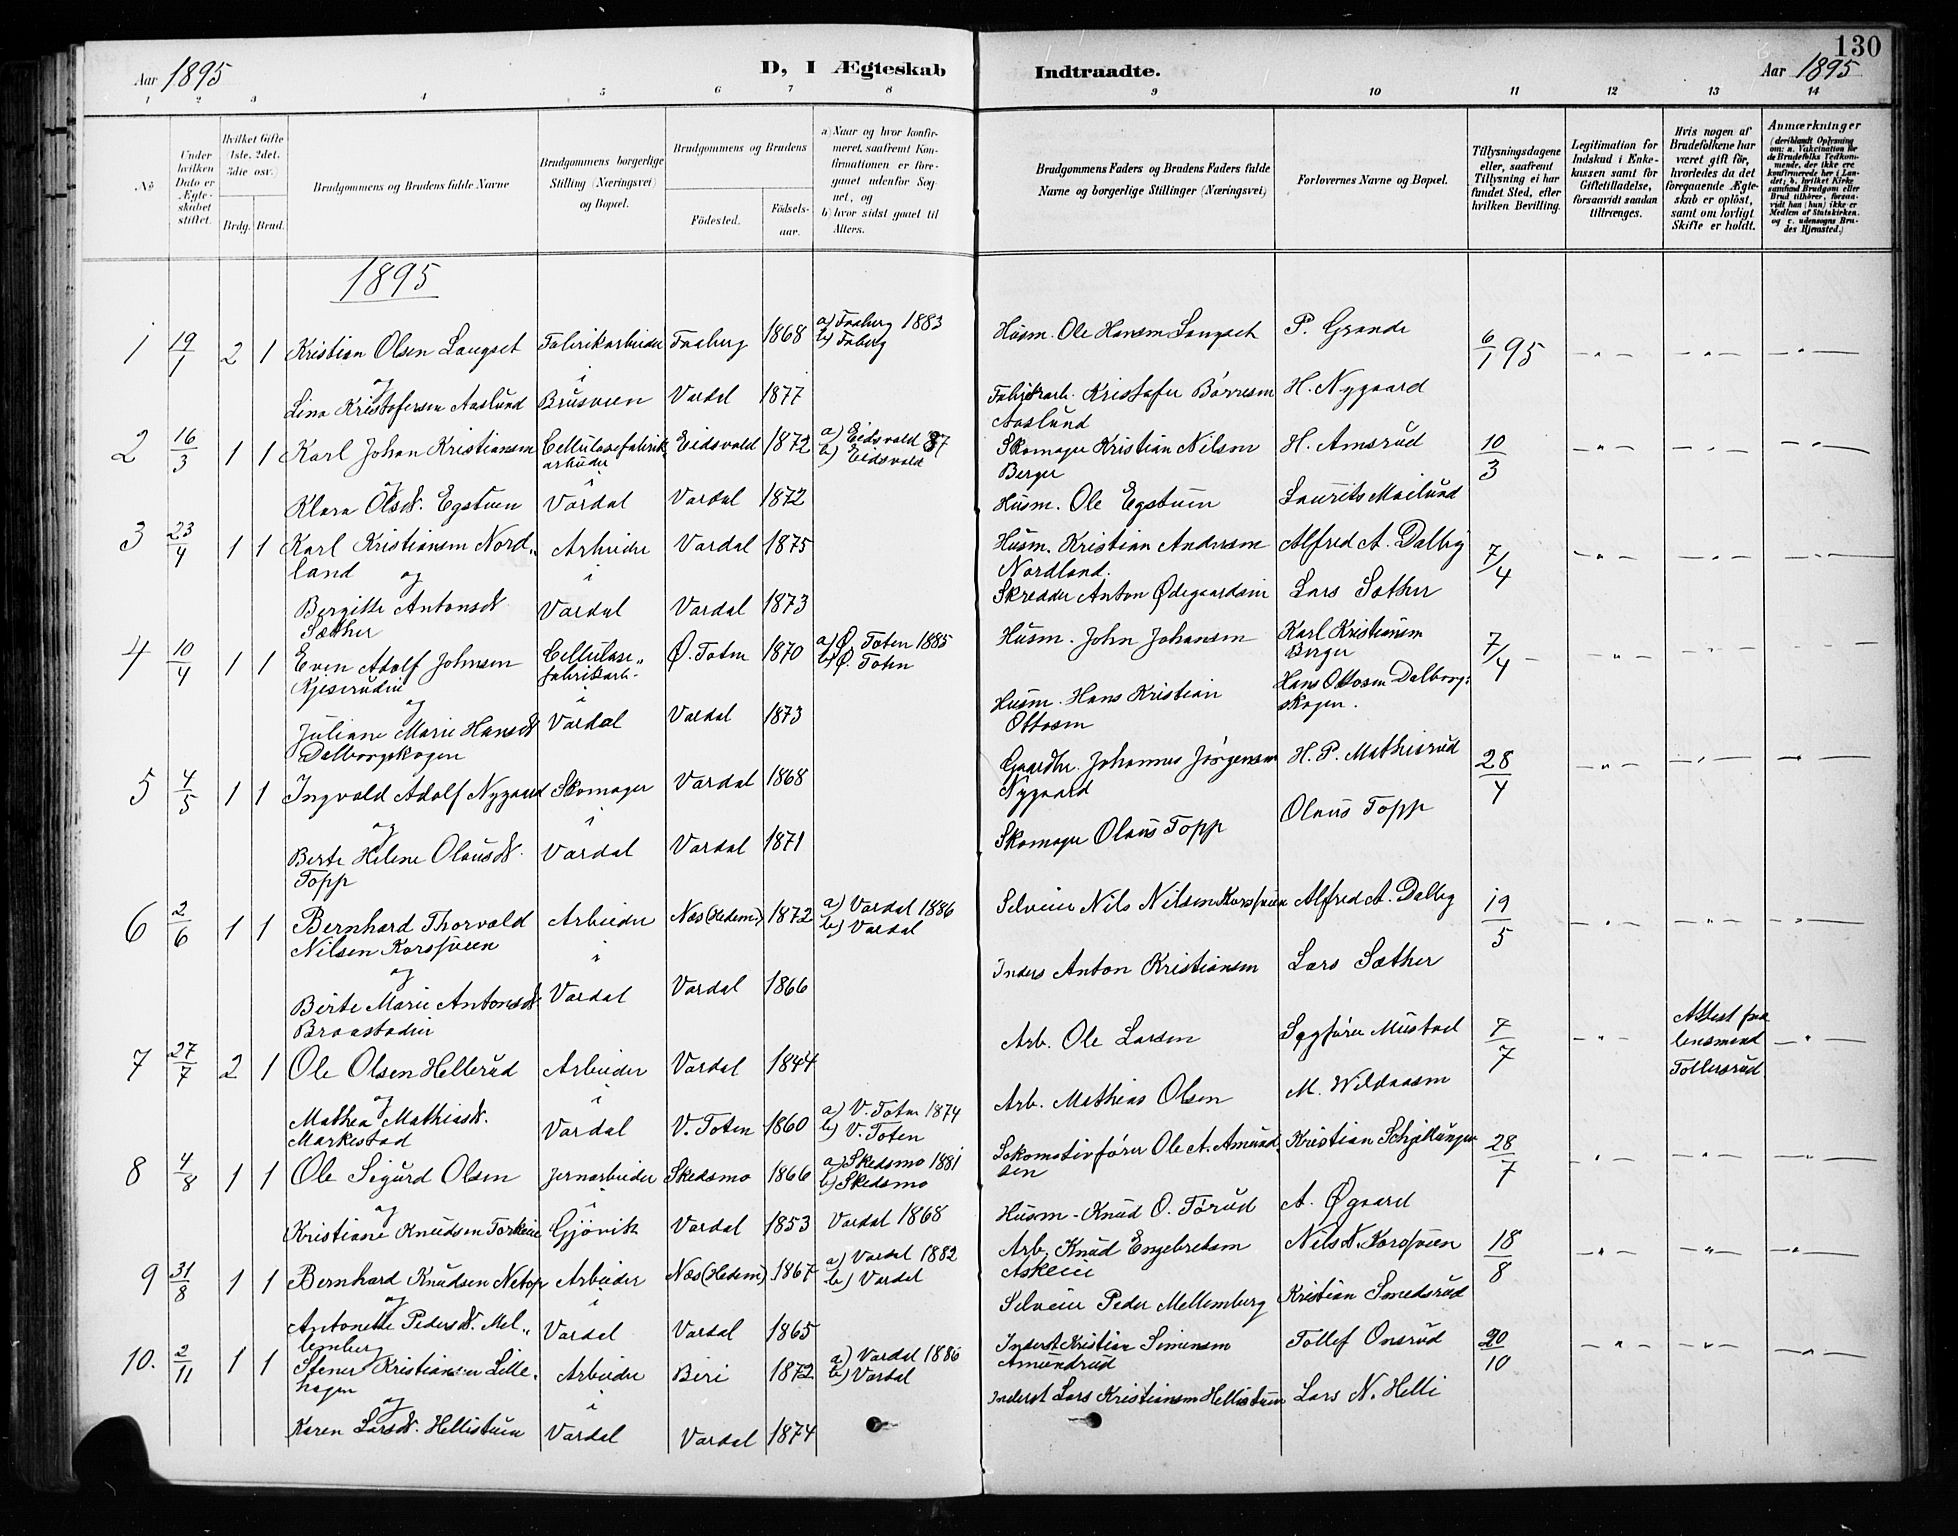 130
Aar 1895
D, I Ægteskab Indtraadte.
Aar 1895
1 2 3 4 5 6 7 8 9 10 11 12 13 14
No
Under hvilken Dato er Ægteskabet stiftet.
Hvilket Gifte (1ste, 2det, 3die osv.)
Brdg. Brud.
Brudgommens og Brudens fulde Navne
Brudgommens borgerlige Stilling (Næringsvei) og Bopæl.
Brudgommens og Brudens
Fødested.
Fødselsaar.
a) Naar og hvor konfirmeret, saafremt Konfirmationen er foregaaet udenfor Sognet, og
b) hvor sidst gaaet til Alters.
Brudgommens Faders og Brudens Faders fulde Navne og borgerlige Stillinger (Næringsvei)
Forlovernes Navne og Bopæl.
Tillysningsdagene eller, saafremt Tillysning ei har fundet Sted, efter hvilken Bevilling.
Legitimation for Indskud i Enkekassen samt for Giftetilladelse, forsaavidt saadan tiltrænges.
Hvis nogen af Brudefolkene har været gift før, hvorledes da det foregaaende Ægteskab er opløst, samt om lovligt Skifte er holdt.
Anmærkninger
(deriblandt Oplysning om: a. Vakcination for de Brudefolks Vedkommende, der ikke ere konfirmerede her i Landet; b. hvilket Kirkesamfund Brudgom eller Brud tilhører, forsaavidt han (hun) ikke er Medlem af Statskirken, og c. udensogns Brudes Hjemsted.)
1895
1 19/1 2 1 Kristian Olsen Langset Fabrikarbeider Faaberg 1868 a) Faaberg 1883 Husm. Ole Hansen Langset P. Grande 6/1 95
b) Faberg
og i
Lina Kristofersen Aaslund Brusveen Vardal 1877 Fabrikarb. Kristofer Børresen H. Nygaard
Aaslund
2 16/3 1 1 Karl Johan Kristiansen Cellulosefabrik- Eidsvold 1872 a) Eidsvold 87 Skomager Kristian Nilsen H. Amsrud 10/3
arbeider b) Eidsvold Berger
og i
Klara Olsd. Egstuen Vardal Vardal 1872 Husm. Ole Egstuen Laurits Mailund
3 23/4 1 1 Karl Kristiansen Nord- Arbeider Vardal 1875 Husm. Kristian Andersen Alfred A. Dalby 7/4
land og i Nordland.
Bergitte Antonsd. Vardal Vardal 1873 Skredder Anton Ødegaardseie Lars Sæther
Sæther
4 10/4 1 1 Even Adolf Johnsen Cellulose- Ø. Toten 1870 a) Ø. Toten 1885 Husm. John Johansen Karl Kristiansen 7/4
Kjiserudeie fabrikarb. b) Ø. Toten Berger
og i
Juliane Marie Hansd. Vardal Vardal 1873 Husm. Hans Kristian Hans Ottosen Dalborg-
Dalborgskogen Ottosen skogen.
5 4/5 1 1 Ingvald Adolf Nygaard Skomager Vardal 1868 Gaardbr. Johannes Jørgensen H. P. Mathisrud 28/4
Nygaard
og i
Berte Helene Olausd. Vardal Vardal 1871 Skomager Olaus Topp Olaus Topp
Topp
6 2/6 1 1 Bernhard Thorvald Arbeider Næs (Hedem.) 1872 a) Vardal 1886 Selveier Nils Nilsen Korsveien Alfred A. Dalby 19/5
Nilsen Korsveen b) Vardal
og i
Birte Marie Antonsd. Vardal Vardal 1866 Inders Anton Kristiansen Lars Sæther
Braastadeie
7 27/7 2 1 Ole Olsen Hellerud Arbeider Vardal 1844 Arb. Ole Larsen Sagfører Mustad 7/7 Attest fra
lensmand
Tollersrud
og i
Mathea Mathiasd. Vardal V. Toten 1860 a) V. Toten 1874 Arb. Mathias Olsen M. Wildaasen
Markestad b) V. Toten
8 4/8 1 1 Ole Sigurd Olsen Jernarbeider Skedsmo 1866 a) Skedsmo 1881 Lokomotivfører Ole A. Amund- Kristian Schjellunger 28/7
b) Skedsmo sen
og i
Kristiane Knudsen Torkeie Gjøvik Vardal 1853 Vardal 1868 Husm. Knud O. Torud A. Øgaard
9 31/8 1 1 Bernhard Knudsen Netop Arbeider Næs (Hedem.) 1867 a) Vardal 1882 Arb. Knud Engebretsen Nils N. Korsveen 18/8
b) Vardal Askeeie
og i
Antonette Pedersd. Mel- Vardal Vardal 1865 Selveier Peder Mellemberg Kristian Smedsrud
lemberg
10. 2/11 1 1 Stener Kristiansen Lille- Arbeider Biri 1872 a) Vardal 1886 Inderst Kristian Simensen Tollef Onsrud 20/10
hagen b) Vardal Amundrud
og i
Karen Larsd. Hellistuen Vardal Vardal 1874 Inderst Lars Kristiansen Hellistuen Lars N. Helli